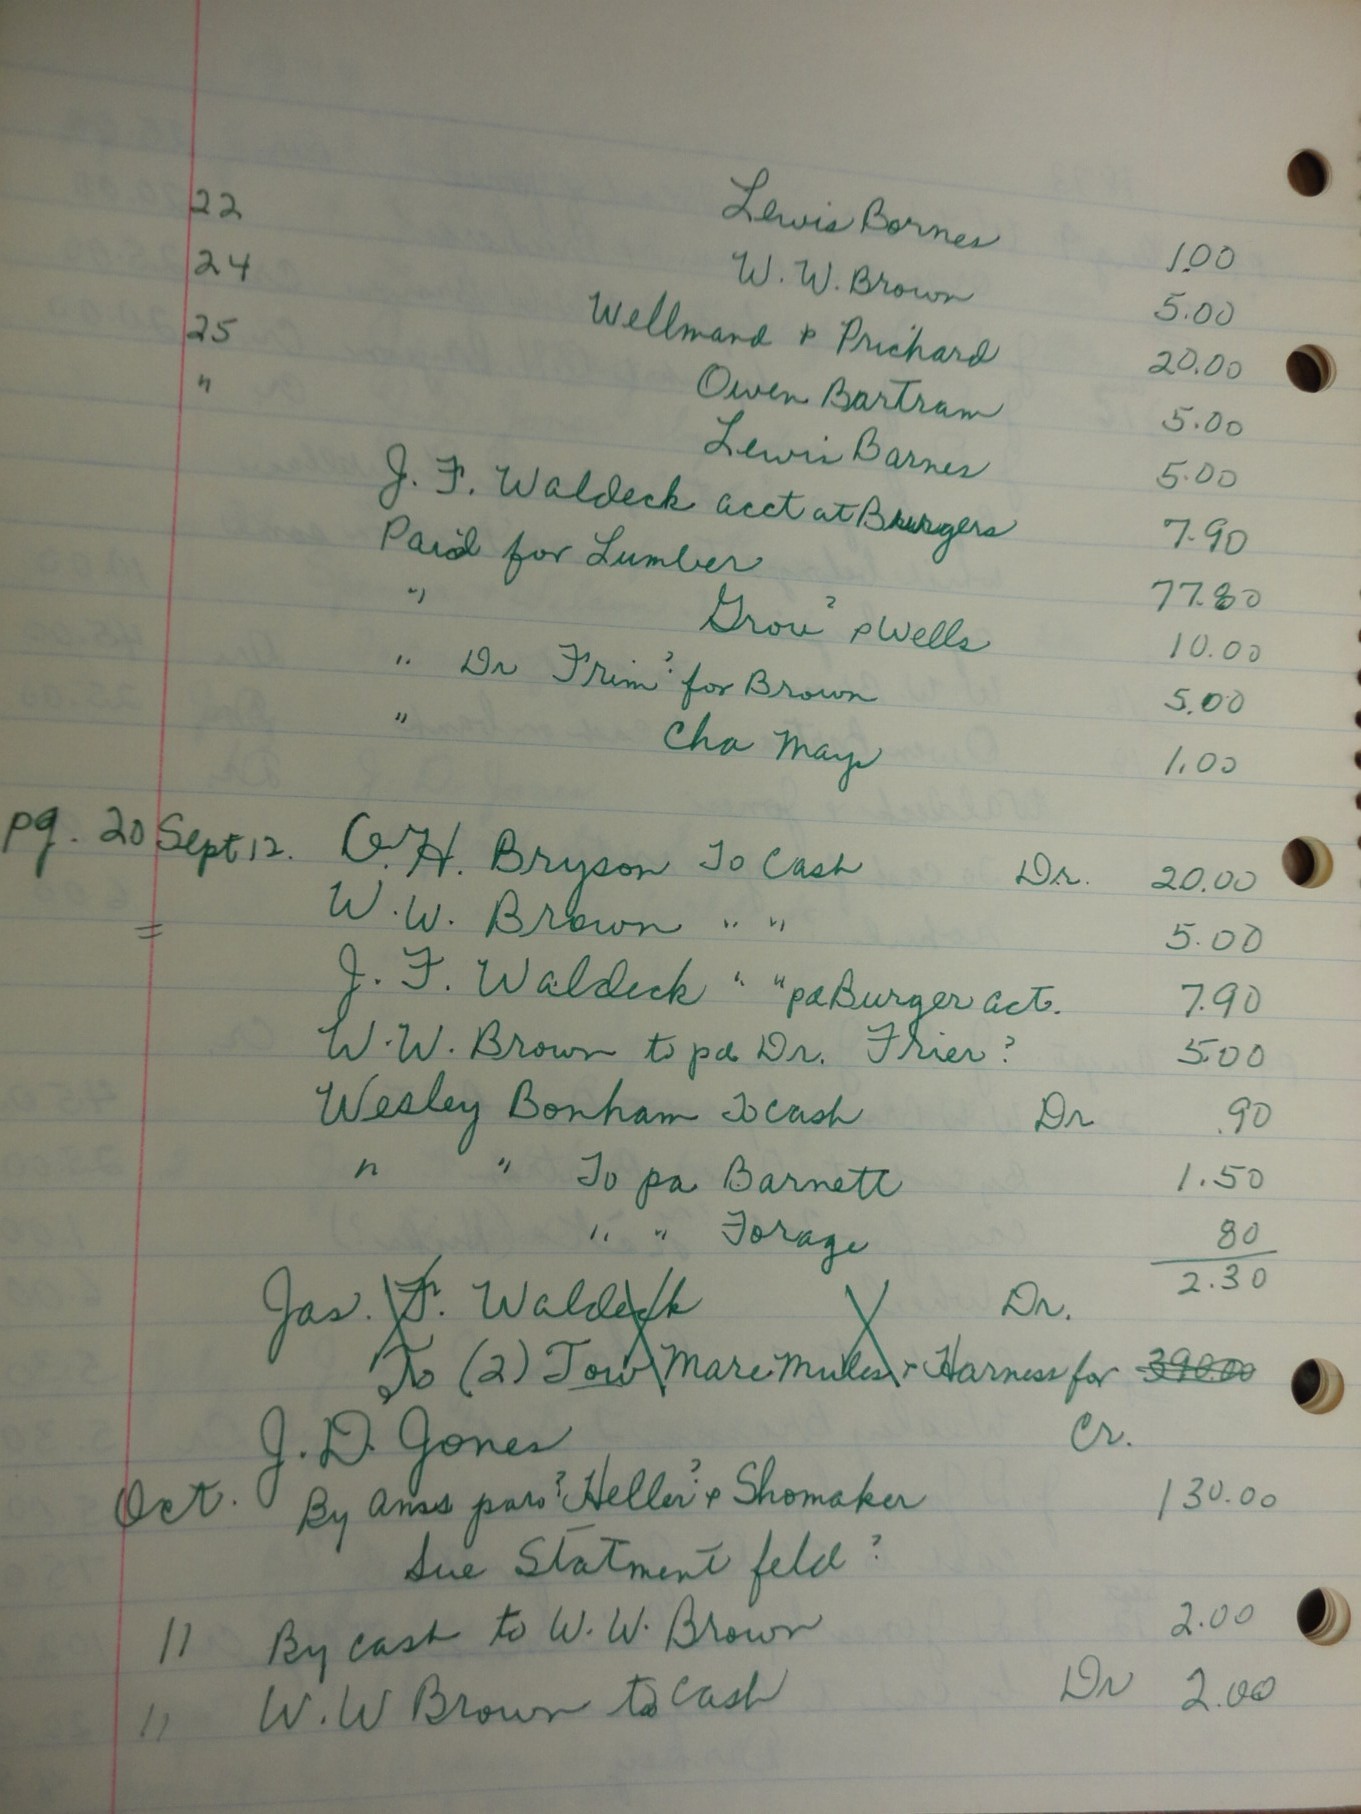 22 Lewis Bornes 1.00
24 W. W. Brown 5.00
25 Wellmand & Prichard 20.00
" Owen Bartram 5.00
Lewis Barnes 5.00
J. F. Waldeck acct at Burgers 7.90
Paid for Lumber 77.80
" Grou? & Wells 10.00
" Dr Frim? for Brown 5.00
" Cha May 1.00
pg. 20 Sept 12. O. H. Bryson To Cash Dr. 20.00
= W. W. Brown " " 5.00
J. F. Waldeck " " pd Burger act. 7.90
W. W. Brown to pd Dr. Frier? 5.00
Wesley Bonham To cash Dr .90
" " To pa Barnett 1.50
" " Forage 80
2.30
Jas. F. Waldeck Dr.
To (2) Tow Mare Mules & Harness for 390.00
J. D. Jones Cr.
Oct. By Amss paro? Heller? & Shomaker 130.00
sue Statment feld?
11 By cash to W. W. Brown 2.00
11 W. W Brown to cash Dr 2.00